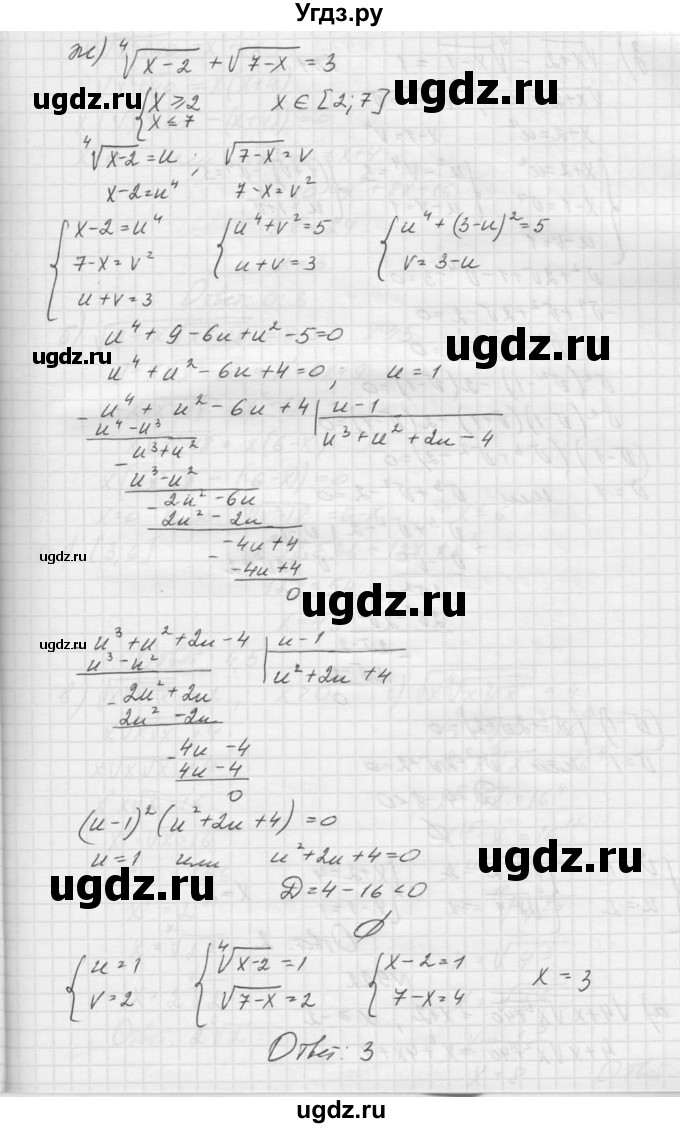 Угдз.ру
ж) ⁴√(x-2) + √(7-x) = 3
{x ⩾ 2 x ∈ [2; 7]
{x ⩽ 7
ugdz.ru ugdz.ru
⁴√(x-2) = u; √(7-x) = v
x-2 = u⁴ 7-x = v²
{x-2 = u⁴ {u⁴+v² = 5 {u⁴+(3-u)² = 5
{7-x = v² {u+v = 3 {v = 3-u
{u+v = 3
u⁴ + 9 - 6u + u² - 5 = 0
ugdz.ru ugdz.ru
u⁴ + u² - 6u + 4 = 0; u = 1
- u⁴ + u² - 6u + 4 | u - 1
u⁴ - u³ u³ + u² + 2u - 4
- u³ + u²
u³ - u²
- 2u² - 6u
2u² - 2u
- -4u + 4
-4u + 4
0
ugdz.ru ugdz.ru
ugdz.ru
u³ + u² + 2u - 4 | u - 1
u³ - u² u² + 2u + 4
- 2u² + 2u
2u² - 2u
- 4u - 4
4u - 4
0
(u-1)² (u² + 2u + 4) = 0
u = 1 или u² + 2u + 4 = 0
ugdz.ru ugdz.ru
D = 4 - 16 < 0
∅
{u = 1 {⁴√(x-2) = 1 {x-2 = 1 x = 3
{v = 2 {√(7-x) = 2 {7-x = 4
Ответ: 3
ugdz.ru
ugdz.ru